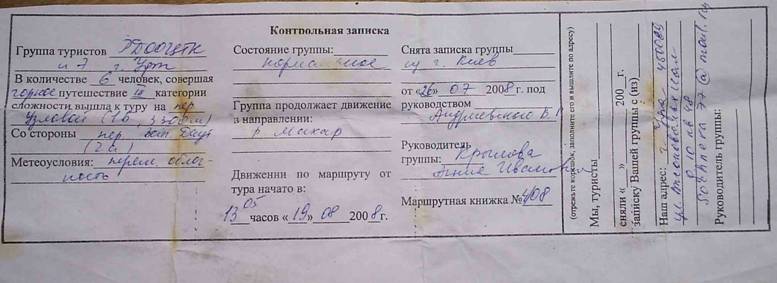 Контрольная записка
Группа туристов
и Э г. Уфа
В количестве 6 человек, совершая
горное путешествие III категории
сложности вышла к туру на пер
Узловой (1Б, 3500м)
Со стороны пер.
(2а)
Метеоусловия: перем. облач-
ность
Состояние группы:
нормальное
Группа продолжает движение
в направлении:
р. Макар
Движении по маршруту от
тура начато в:
13 05 часов «19» 08 2008г.
Снята записка группы
из г. Киев
от «26» 07 2008г. под
руководством
Руководитель
группы: Крылова
Маршрутная книжка № 408
(отрежьте корешок, заполните его и вышлите по адресу)
Мы, туристы
сняли « » 200 г.
записку Вашей группы с (из)
Наш адрес: г. Уфа
Руководитель группы: